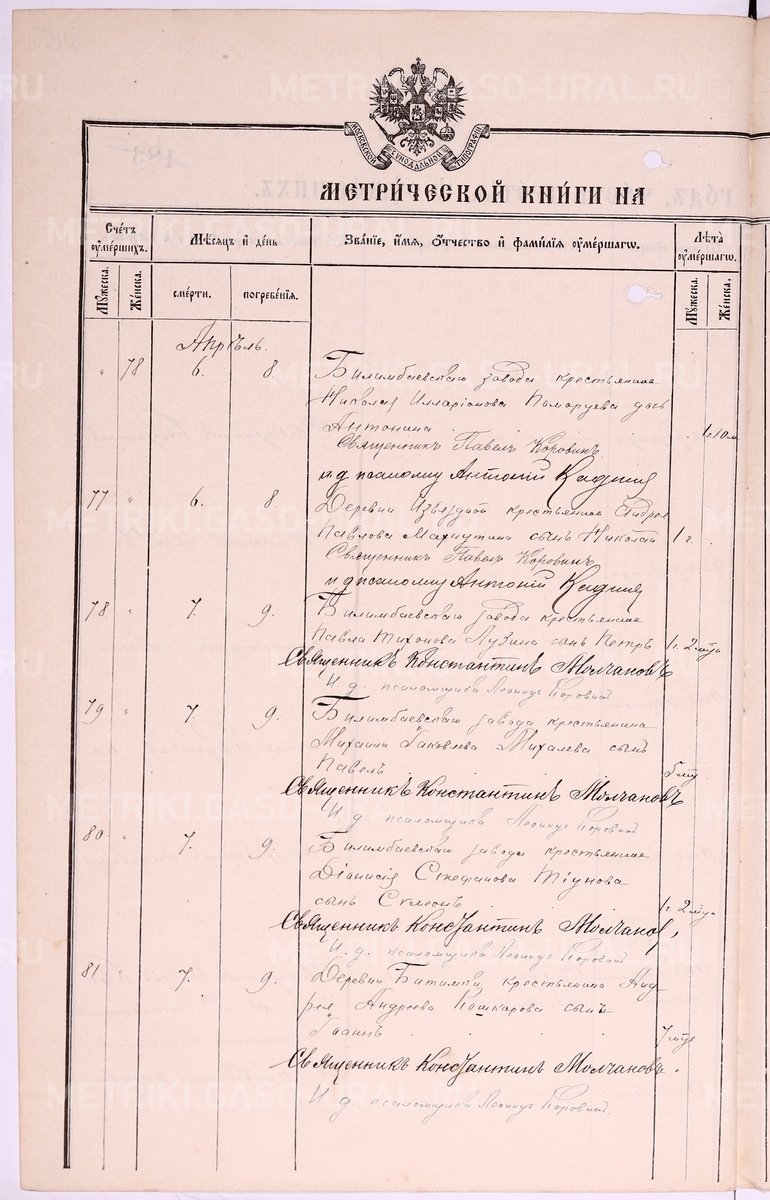 МОСКОВСКОЙ СѴНОДАЛЬНОЙ ТИПОГРАФІИ
МЕТРИ́ЧЕСКОЙ КНИ́ГИ НА
Счетъ ᲂумершихъ.
Мѣсяцъ и день
Званіе, имя, ѻтчество и фамилія ᲂумершагѡ.
Лѣта ᲂумершагѡ.
Мꙋжеска.
Женска.
смерти.
погребенія.
Мꙋжеска.
Женска.
Апрѣль.
" 78 6. 8. Билимбаевскаго завода крестьянина
Николая Илларіонова Комарцева дочь
Антонина 1 г. 10 м.
Священникъ Павелъ Коровинъ
и д псаломщ Антоній
77 " 6. 8. Деревни Извездной крестьянина Андрея
Павлова Махнутина сынъ Николай 1 г.
Священникъ Павелъ Коровинъ
и д псаломщ Антоній
78 " 7. 9. Билимбаевскаго завода крестьянина
Павла Тихонова Лузина сынъ Петръ 1 г. 2 мѣся
Священникъ Константинъ Молчановъ
И. д. псаломщика Леонидъ Коровинъ
79 " 7. 9. Билимбаевскаго завода крестьянина
Михаила Іаковлева Михалева сынъ
Павелъ 5 мѣц
Священникъ Константинъ Молчановъ
И. д. псаломщика Леонидъ Коровинъ
80 " 7. 9. Билимбаевскаго завода крестьянина
Діонисія Стефанова Тіунова
сынъ Симеонъ 1 г. 2 мѣся
Священникъ Константинъ Молчанов,
И. д. псаломщика Леонидъ Коровинъ
81 " 7. 9. Деревни Битимки крестьянина Анд
рея Андреева Кошкарова сынъ
Іоаннъ 7 мѣся
Священникъ Константинъ Молчановъ.
И. д. псаломщика Леонидъ Коровинъ.